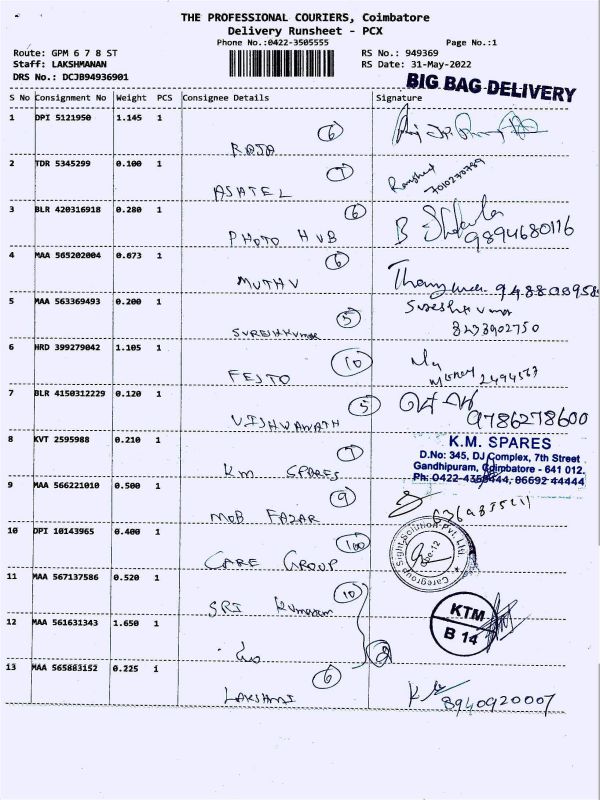 THE PROFESSIONAL COURIERS, Coimbatore
Delivery Runsheet - PCX
Phone No.:0422-3505555 Page No.:1
Route: GPM 6 7 8 ST RS No.: 949369
Staff: LAKSHMANAN RS Date: 31-May-2022
DRS No.: DCJB94936901
BIG BAG DELIVERY
S No Consignment No Weight PCS Consignee Details Signature
1 DPI 5121950 1.145 1 RAJA 6
2 TDR 5345299 0.100 1 ASATEL 7010230789
3 BLR 420316918 0.280 1 PHOTO HUB 6 B 9894680116
4 MAA 565202004 0.073 1 MUTHU 6
5 MAA 563369493 0.200 1 SURESHKUMAR 5 Sureshkumar
6 HRD 399279042 1.105 1 FESTO 10
7 BLR 4150312229 0.120 1 VISHVANATH 5 9786278600
8 KVT 2595988 0.210 1 KM SPARES
K.M. SPARES
D.No: 345, DJ Complex, 7th Street
Gandhipuram, Coimbatore - 641 012.
Ph: 0422-4359444, 86692 44444
9 MAA 566221010 0.500 1 MOB FAZAR 9
10 DPI 10143965 0.400 1 CARE GROUP 100
Caregroup Sight Solution Pvt. Ltd.
11 MAA 567137586 0.520 1 SRI 10
12 MAA 561631343 1.650 1
KTM
B 14
13 MAA 565883152 0.225 1 LAKSHMI 6 8940920007